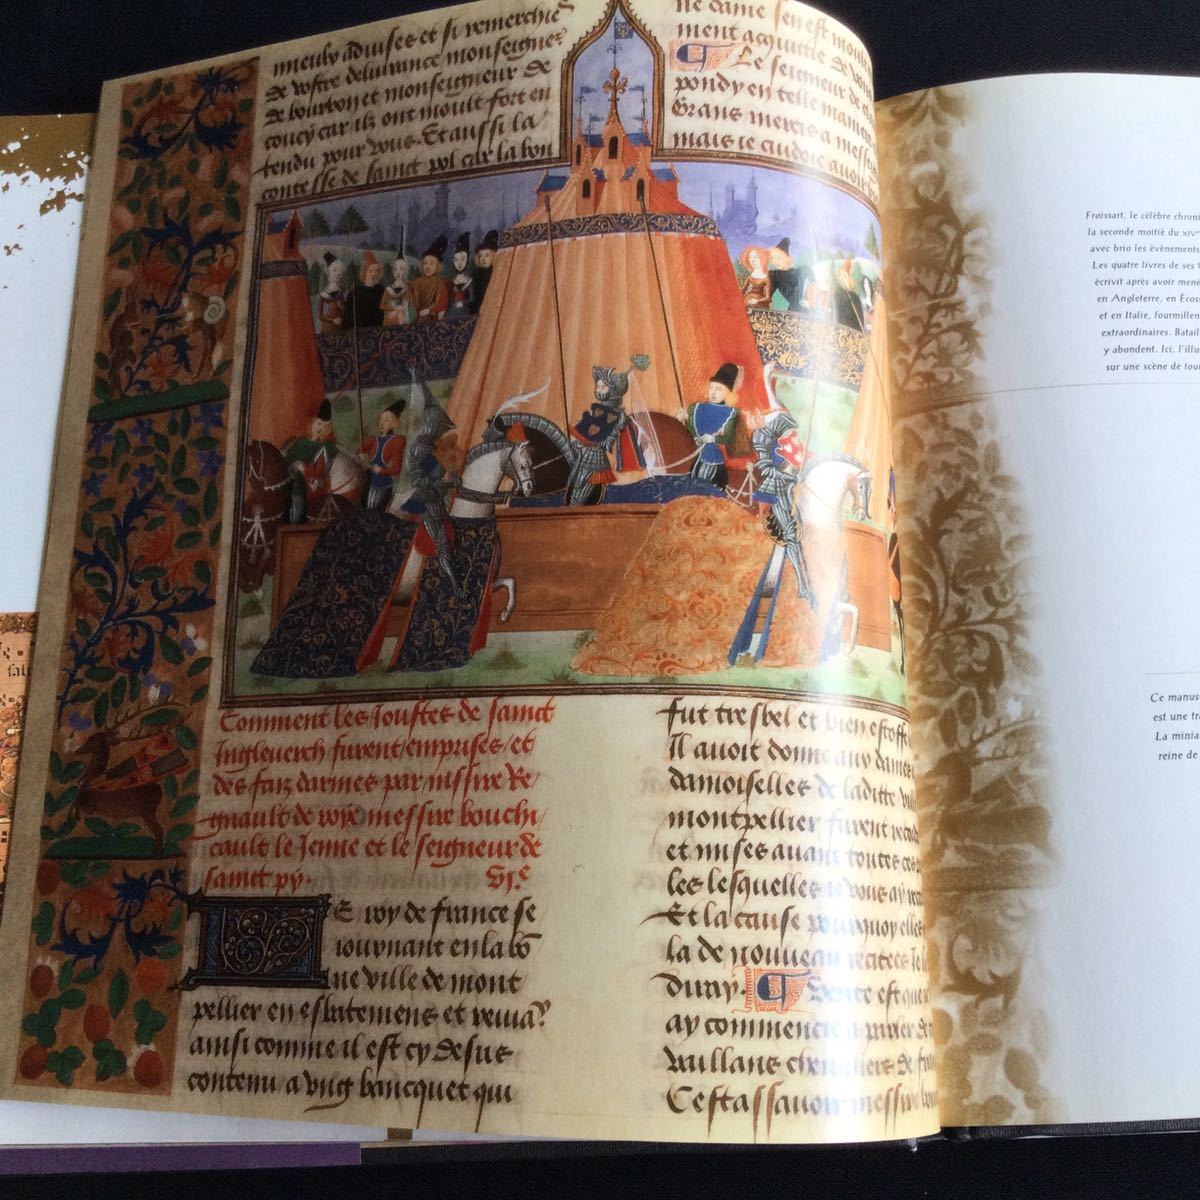 mieulx aduises et si remerchie
de vostre deliurance monseigneur
de bourbon et monseigneur de
coucy car ilz ont moult fort en
tendu pour vous. Et aussi la
contesse de sainct pol car la bon
ne dame sen est moult
ment acquittie de vous
Le seigneur de
pondy en telle maniere
Grans mercis a messe
mais ie cuidoie auoir
Comment les Joustes de sainct
Ingleverch furent emprises et
des faiz darmes par messire Re
gnault de roye messire bouchi
cault le Jenne et le seigneur de
sainct py.
Le roy de france se
iournant en la bo
ne ville de mont
pellier en esbatemens et reuiaux
ainsi comme il est cy desus
contenu a vng bancquet qui
fut tresbel et bien estoffe
Il auoit donne aux dames
damoiselles de laditte ville
montpellier furent
et mises auant toutes ces
les lesquelles ie vous ay
Et la cause pourquoy elles
la de nouueau recitees Je le
diray.
est que
ay commencie a parler de
vaillans cheualiers de
Cest assauoir messire
Froissart, le célèbre
la seconde moitié du XIVe
avec brio les évènements
Les quatre livres de ses
écrivit après avoir mené
en Angleterre, en
et en Italie,
extraordinaires.
y abondent. Ici,
sur une scène de
Ce
est une
La
reine de